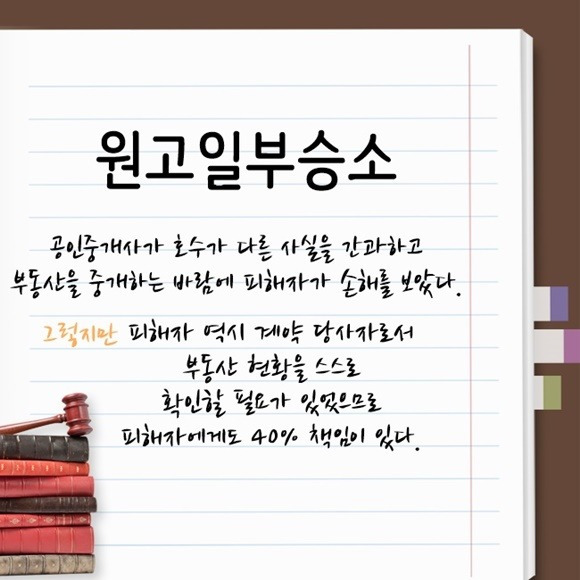 원고일부승소
공인중개사가 호수가 다른 사실을 간과하고
부동산을 중개하는 바람에 피해자가 손해를 보았다.
그렇지만 피해자 역시 계약 당사자로서
부동산 현황을 스스로
확인할 필요가 있었으므로
피해자에게도 40% 책임이 있다.